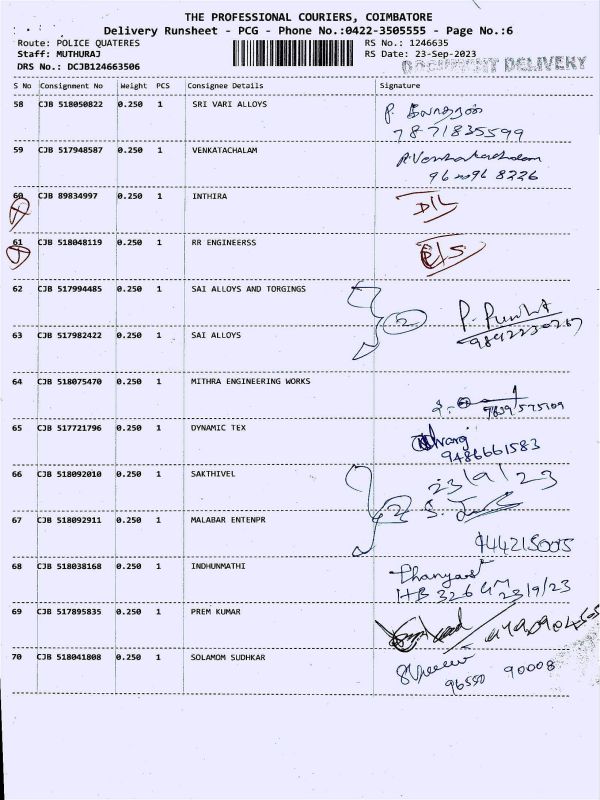 THE PROFESSIONAL COURIERS, COIMBATORE
Delivery Runsheet - PCG - Phone No.:0422-3505555 - Page No.:6
Route: POLICE QUATERES RS No.: 1246635
Staff: MUTHURAJ RS Date: 23-Sep-2023
DRS No.: DCJB124663506 DOCUMENT DELIVERY
S No Consignment No Weight PCS Consignee Details Signature
58 CJB 518050822 0.250 1 SRI VARI ALLOYS
7871835599
59 CJB 517948587 0.250 1 VENKATACHALAM
60 CJB 89834997 0.250 1 INTHIRA D/L
61 CJB 518048119 0.250 1 RR ENGINEERSS
62 CJB 517994485 0.250 1 SAI ALLOYS AND TORGINGS
2
63 CJB 517982422 0.250 1 SAI ALLOYS
64 CJB 518075470 0.250 1 MITHRA ENGINEERING WORKS
65 CJB 517721796 0.250 1 DYNAMIC TEX
9486661583
66 CJB 518092010 0.250 1 SAKTHIVEL 23/9/23
2
67 CJB 518092911 0.250 1 MALABAR ENTENPR
68 CJB 518038168 0.250 1 INDHUNMATHI
23/9/23
69 CJB 517895835 0.250 1 PREM KUMAR
70 CJB 518041808 0.250 1 SOLAMOM SUDHKAR
96550 90008